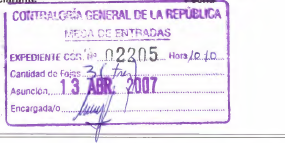 CONTRALORÍA GENERAL DE LA REPÚBLICA
MESA DE ENTRADAS
EXPEDIENTE CGR. Nº 02205 Hora 10:10
Cantidad de Fojas 3 (tres)
Asunción, 13 ABR. 2007
Encargada/o